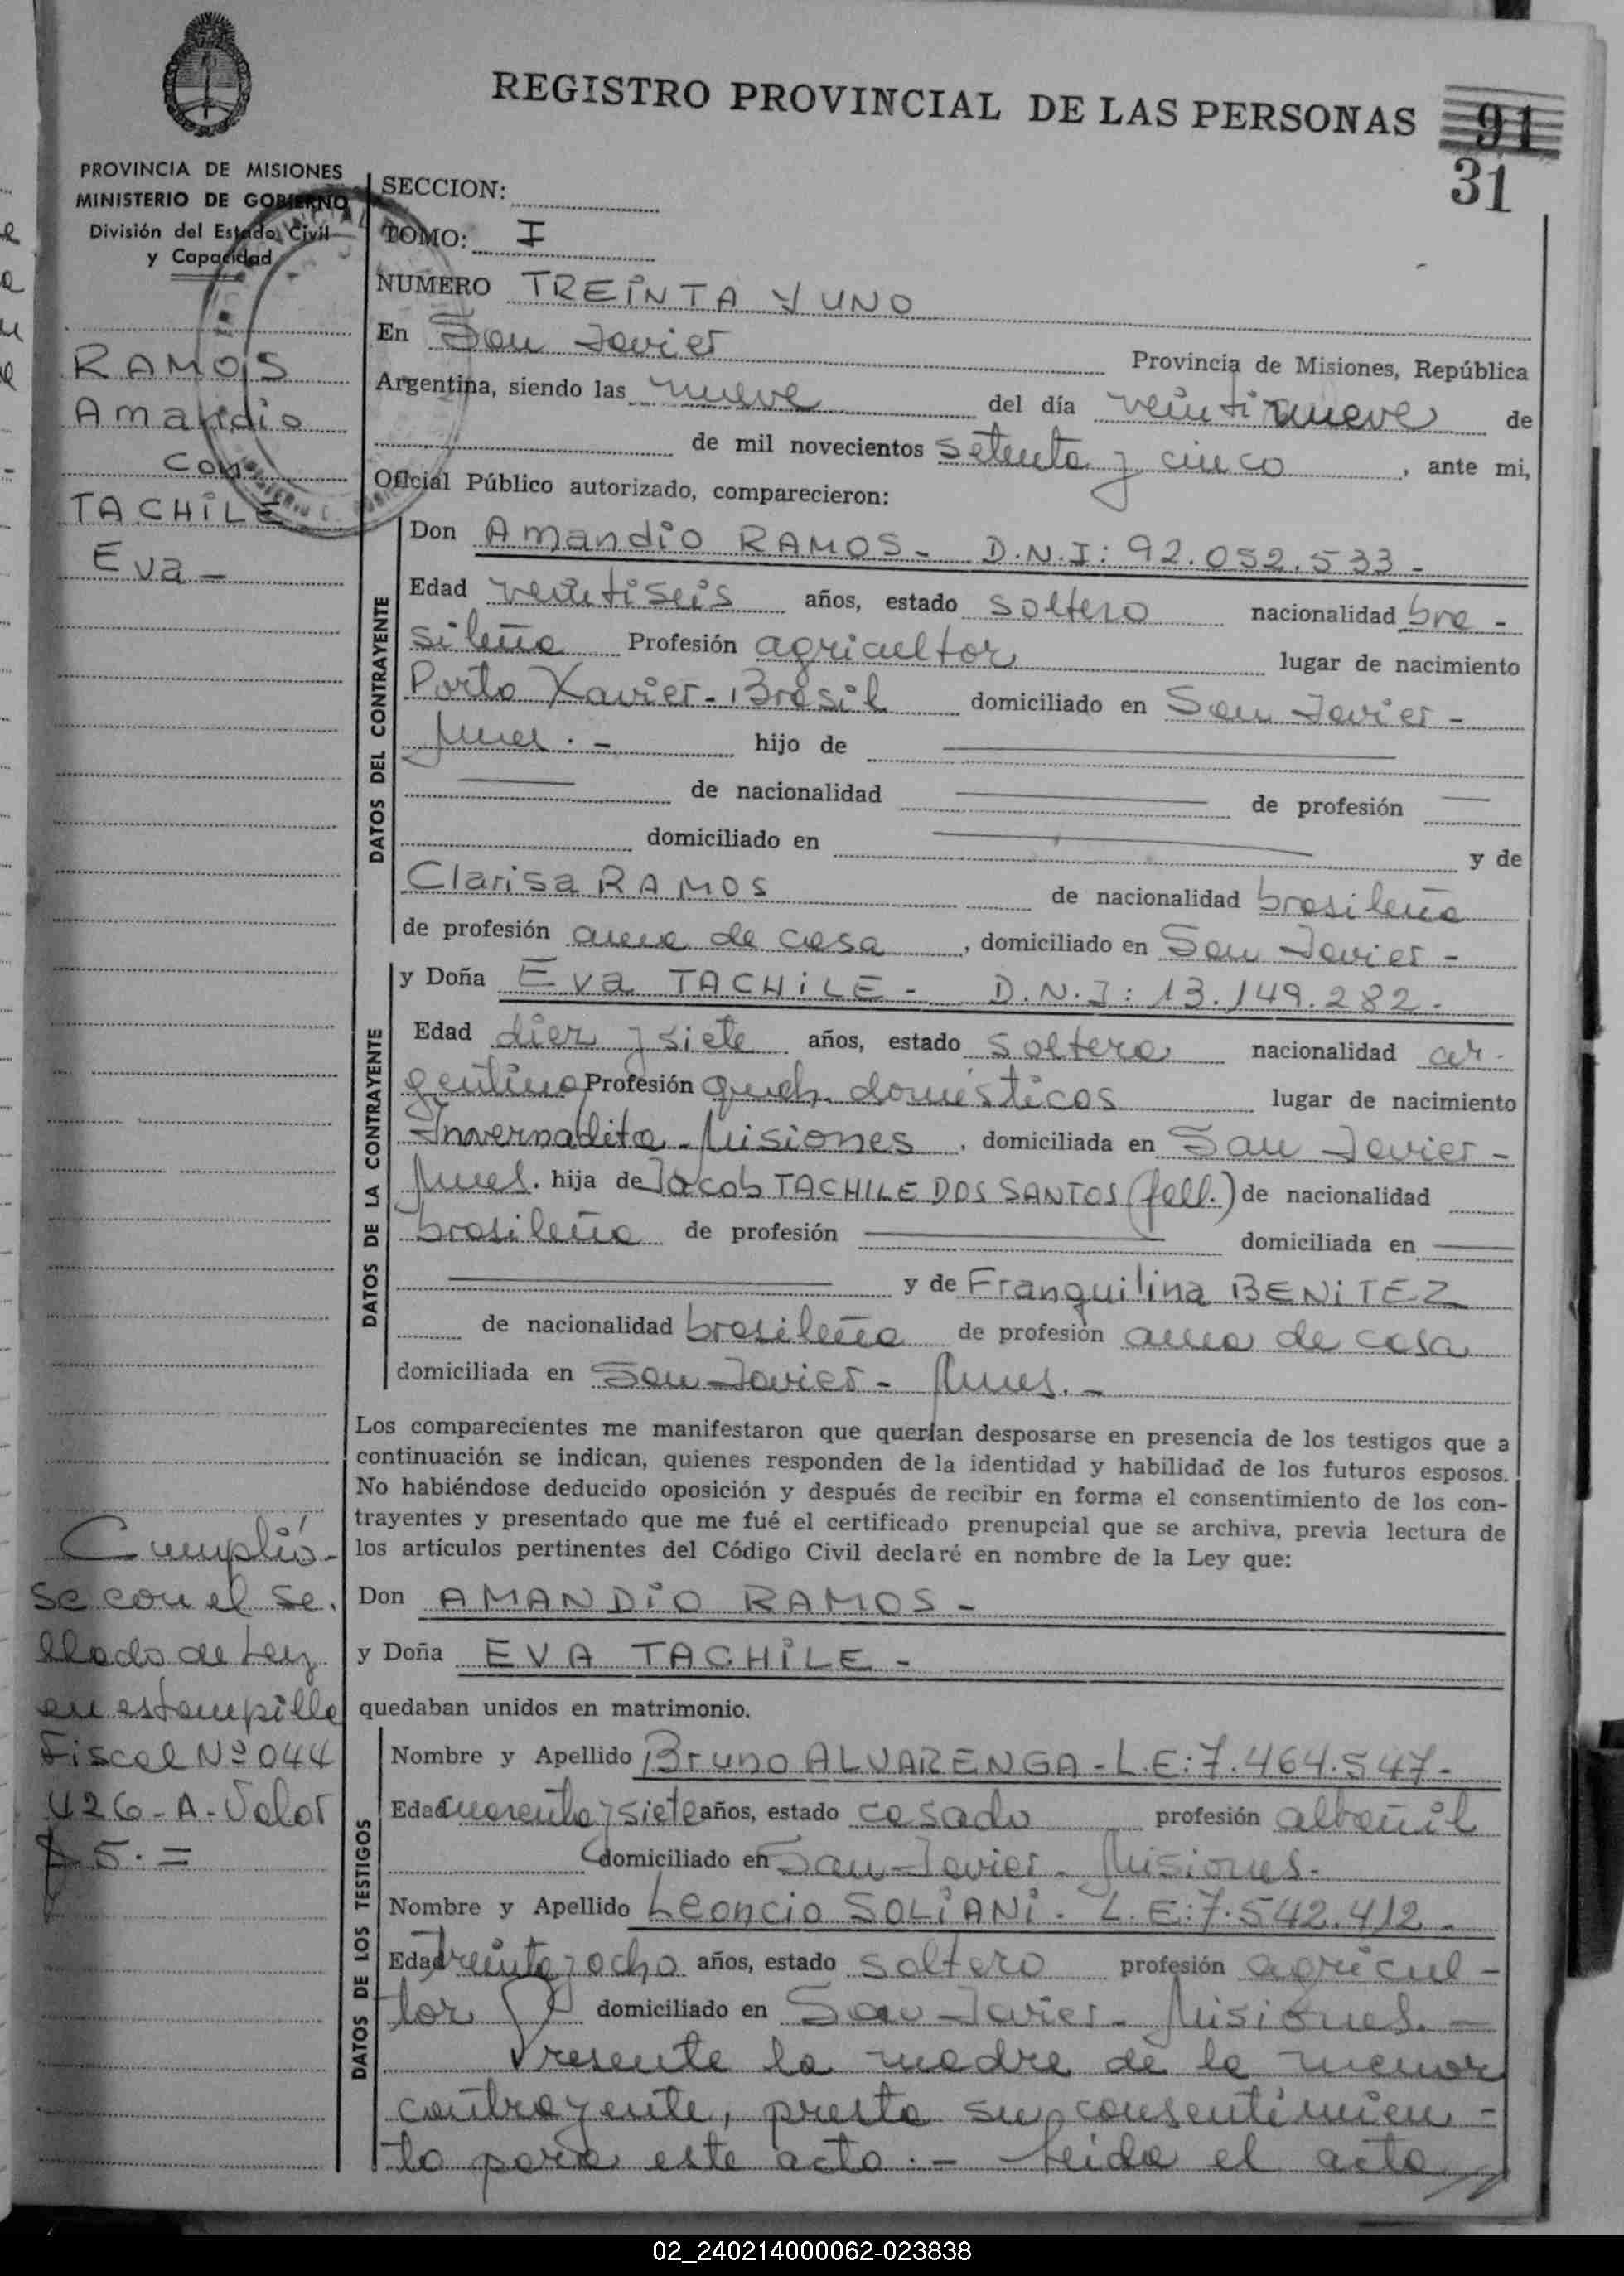 REGISTRO PROVINCIAL DE LAS PERSONAS
91
31
PROVINCIA DE MISIONES
MINISTERIO DE GOBIERNO
División del Estado Civil
y Capacidad
RAMOS
Amandio
con
TACHiLE
Eva -
SECCION:
TOMO: I
NUMERO TREiNTA y UNO
En San Javier Provincia de Misiones, República
Argentina, siendo las nueve del día veintinueve de
de mil novecientos setenta y cinco, ante mi,
Oficial Público autorizado, comparecieron:
DATOS DEL CONTRAYENTE
Don Amandio RAMOS - D.N.I: 92.052.533 -
Edad veintiseis años, estado soltero nacionalidad bra -
sileña Profesión agricultor lugar de nacimiento
Porto Xavier - Brasil domiciliado en San Javier -
Mnes. - hijo de
de nacionalidad de profesión
domiciliado en y de
Clarisa RAMOS de nacionalidad brasileña
de profesión ama de casa, domiciliado en San Javier -
DATOS DE LA CONTRAYENTE
y Doña Eva TACHiLE - D.N.I: 13.149.282 -
Edad diez y siete años, estado soltera nacionalidad ar -
gentina Profesión queh. domésticos lugar de nacimiento
Invernadita - Misiones, domiciliada en San Javier -
Mnes. hija de Jacob TACHILE DOS SANTOS (fall.) de nacionalidad
brasileña de profesión domiciliada en
y de Franquilina BENiTEZ
de nacionalidad brasileña de profesión ama de casa
domiciliada en San Javier - Mnes. -
Los comparecientes me manifestaron que querían desposarse en presencia de los testigos que a
continuación se indican, quienes responden de la identidad y habilidad de los futuros esposos.
No habiéndose deducido oposición y después de recibir en forma el consentimiento de los con-
trayentes y presentado que me fué el certificado prenupcial que se archiva, previa lectura de
los artículos pertinentes del Código Civil declaré en nombre de la Ley que:
Don AMANDiO RAMOS -
y Doña EVA TACHiLE -
quedaban unidos en matrimonio.
Cumplió -
se con el se.
llado de Ley
en estampilla
Fiscal Nº 044
426 - A - Valor
$ 5. =
DATOS DE LOS TESTIGOS
Nombre y Apellido Bruno ALVARENGA - L.E: 7.464.547 -
Edad cuarenta y siete años, estado casado profesión albañil
domiciliado en San Javier - Misiones -
Nombre y Apellido Leoncio SOLiANi - L.E: 7.542.412 -
Edad treinta y ocho años, estado soltero profesión agricul -
tor domiciliado en San Javier - Misiones. -
Presente la madre de la menor
contrayente, presta su consentimien -
to para este acto. - Leida el acta
02_240214000062-023838